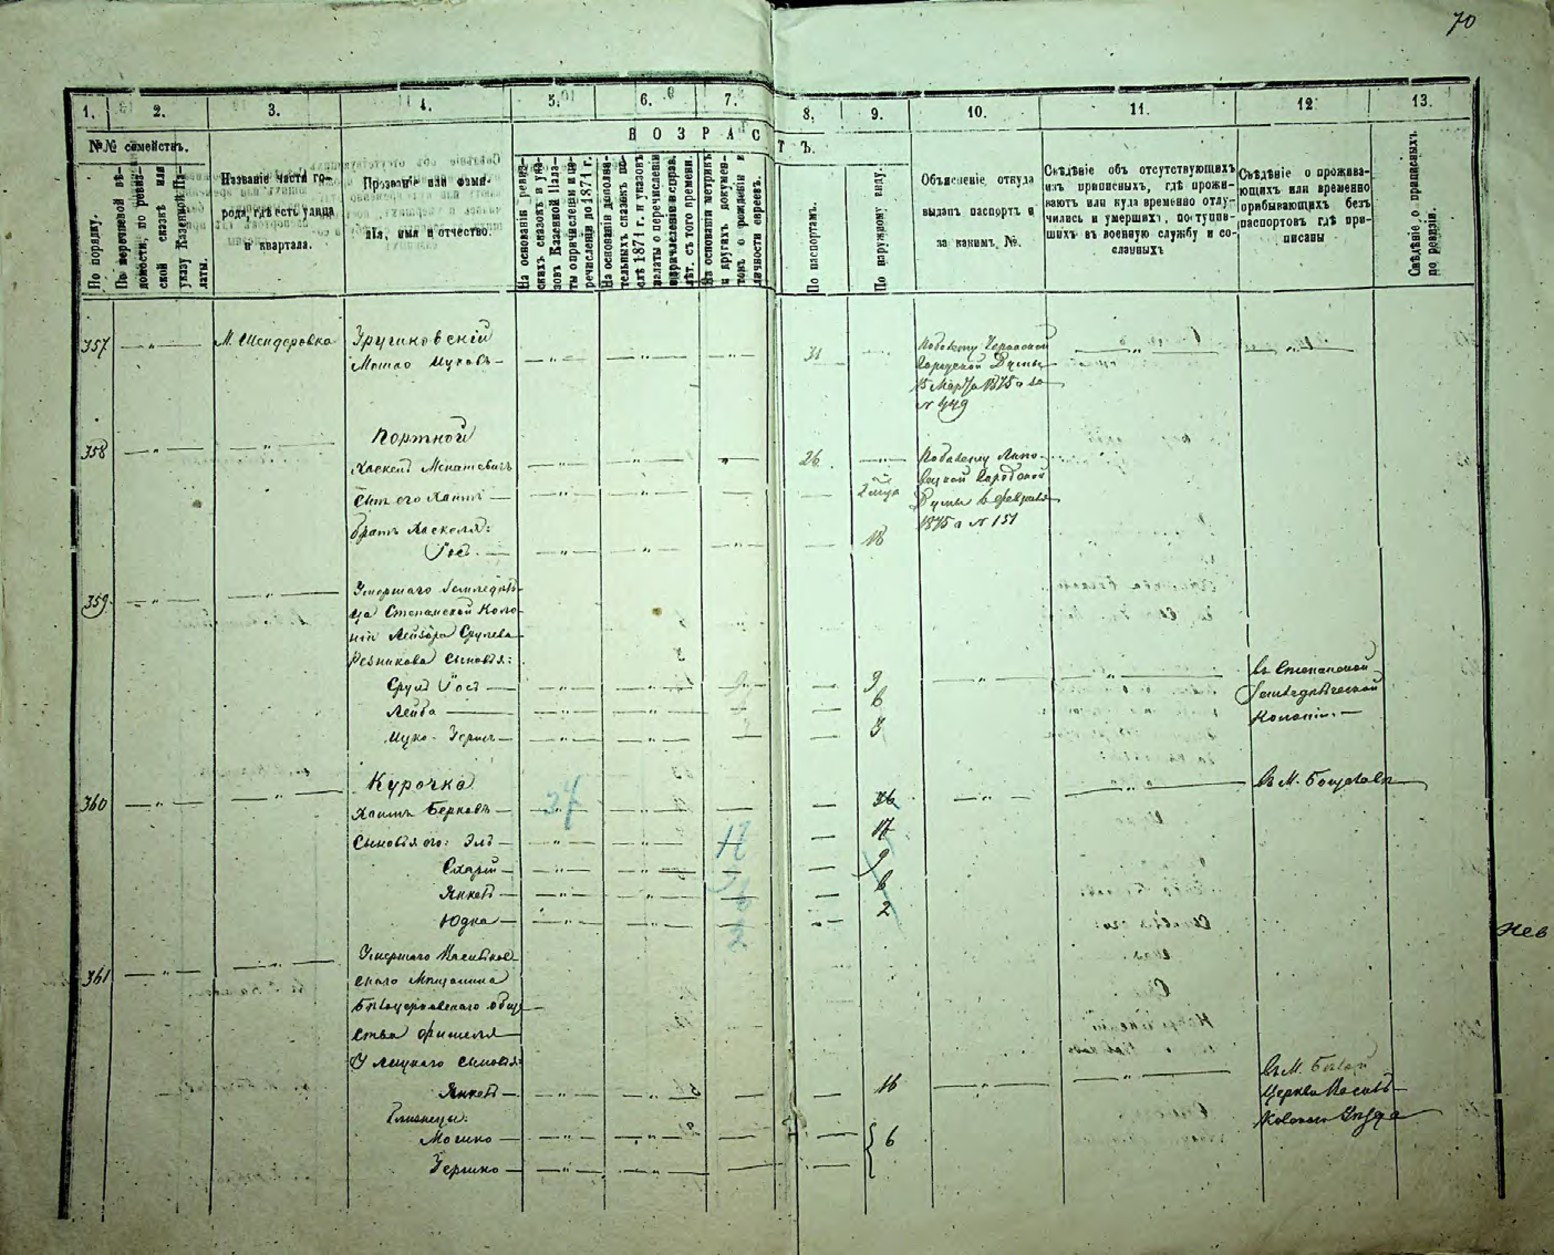 70
1. 2. 3. 4. 5. 6. 7. 8. 9. 10. 11. 12 13.
№№ семействъ.
ВОЗРАСТЪ.
По порядку.
По перечневой вѣ-
домости, по ревиз-
ской сказкѣ или
указу Казенной Па-
латы.
Названіе части го-
рода, гдѣ есть улица
и квартала.
Прозваніе или фами-
лія, имя и отчество.
На основаніи ревиз-
скихъ сказокъ и ука-
зовъ Казенной Пала-
ты о причисленіи и пе-
речисленіи до 1871 г.
На основаніи дополни-
тельныхъ сказокъ по-
слѣ 1871 г. и указовъ
палаты о перечисленіи
лѣт. съ того времени.
На основаніи метрикъ
и другихъ докумен-
товъ о рожденіи и
личности евреевъ.
По паспортамъ.
По наружному виду.
Объясненіе откуда
выданъ паспортъ и
за какимъ №.
Свѣдѣніе объ отсутствующихъ
изъ приписныхъ, гдѣ прожи-
ваютъ или куда временно отлу-
чились и умершихъ, поступив-
шихъ въ военную службу и со-
сланныхъ
Свѣдѣніе о прожива-
ющихъ или временно
прибывающихъ безъ
паспортовъ гдѣ при-
писаны
Свѣдѣніе о приписныхъ
по ревизіи.
357 — " — М. Шендеровка
Мошко Ицковъ — " — — " — — " — 31
Городской Думы
15 Марта 1875 г за
№ 449
358 — " — — " — Портной
26
Сынъ его Хаимъ —
Думы 6 февраля
1875 г № 151
братъ Хаскеля:
Іос. — 18
359 — " — — " — Умершаго Земледѣль-
ца Степанской Коло-
ніи Лейзора Срулева
Резникова Сыновья:
въ Степанской
Сруль Іось — 9
Земледѣльческой
Лейба — 6
Колоніи. —
Ицко-Герш — 3
360 — " — — " — Курочка
Хаимъ Берковъ — 37 36
Сыновья его: Эль — 17
9
Янкель — 6
Юдка — 2
361 — " — — " — Умершаго Васильков-
скаго Мѣщанина
Бѣлоцерковскаго обще-
ства Фишеля
сыновья:
въ М. Бѣлой
Янкель — 16
Церкви Василь-
ковскаго Уѣзда
близнецы:
Мошко — } 6
Гершко —